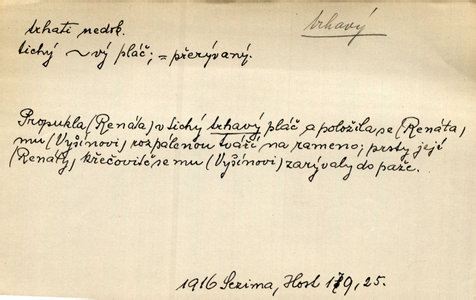 trhavý
trhati nedok.
tichý ~vý pláč; = přerývaný.
Propukla (Renáta) v tichý trhavý pláč a položila se (Renáta)
mu (Vyšínovi) rozpálenou tváří na rameno; prsty její
(Renáty) křečovitě se mu (Vyšínovi) zarývaly do paže.
1916 Sezima, Host 179, 25.